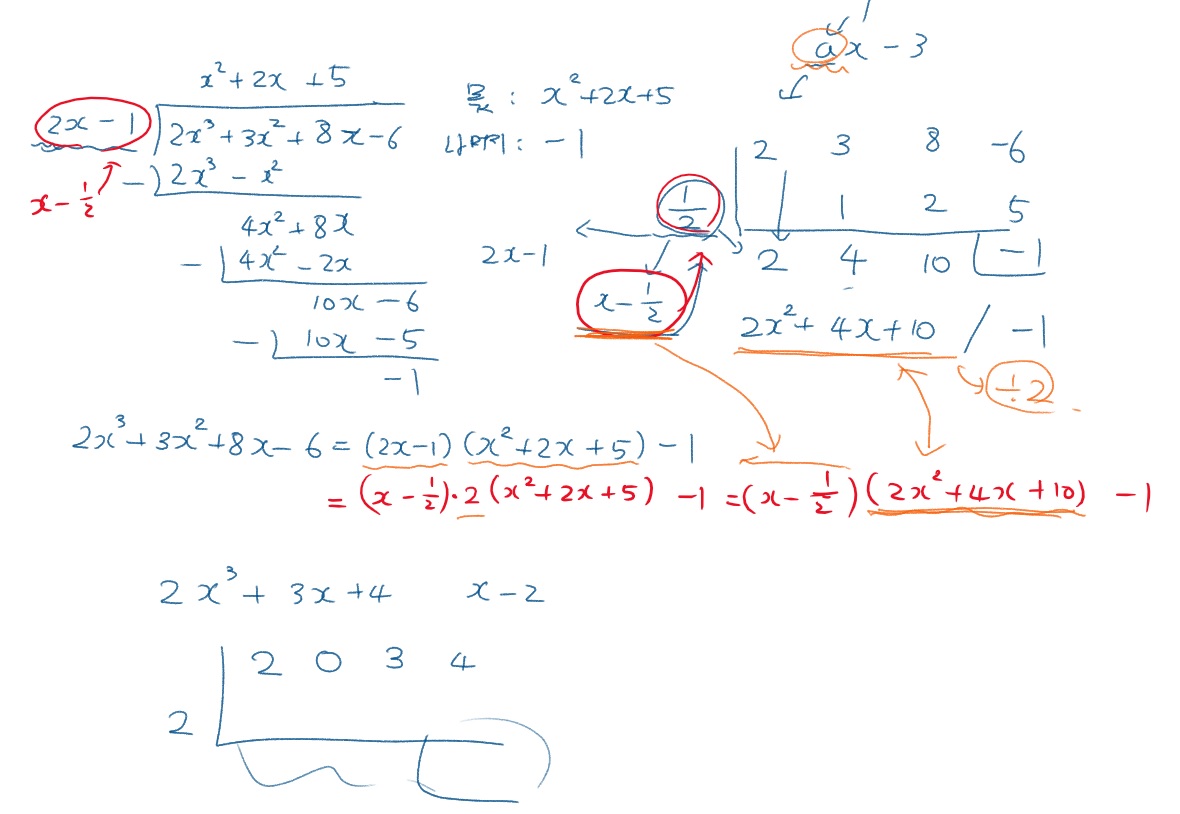 x²+2x+5
2x-1 ) 2x³+3x²+8x-6
x-1/2
- 2x³-x²
4x²+8x
- 4x²-2x
10x-6
- 10x-5
-1
몫: x²+2x+5
나머지: -1
ax-3
2 3 8 -6
1/2 1 2 5
2 4 10 -1
2x-1
x-1/2
2x²+4x+10 / -1
÷2
2x³+3x²+8x-6=(2x-1)(x²+2x+5)-1
=(x-1/2)·2(x²+2x+5)-1=(x-1/2)(2x²+4x+10)-1
2x³+3x+4 x-2
2 0 3 4
2